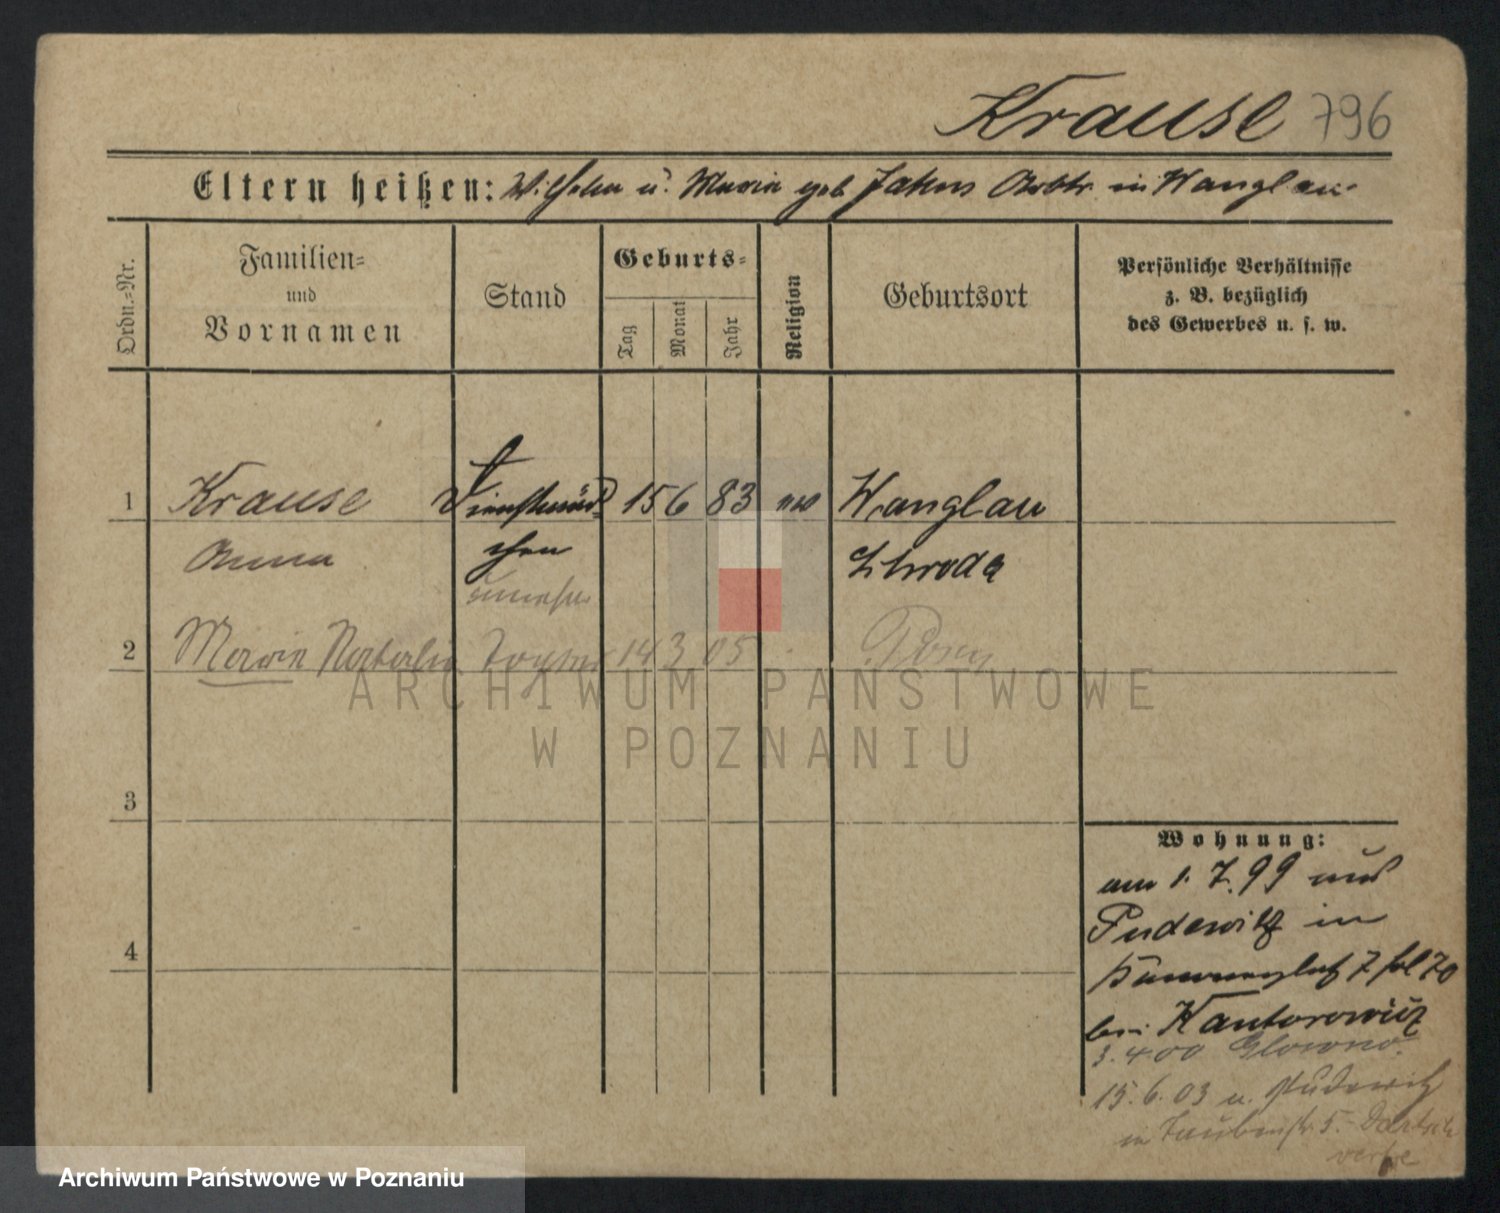 Krause 796
Eltern heißen: Wilhelm u. Maria geb. Arbtr. in Wanglau
Ordn.-Nr.
Familien-
und
Vornamen
Stand
Geburts-
Tag
Monat
Jahr
Religion
Geburtsort
Persönliche Verhältnisse
z. B. bezüglich
des Gewerbes u. s. w.
1 Krause Dienstmäd- 15 6 83 Wanglau
Anna chen Schroda
2 Maria Natalie 14 3 05 Posen
ARCHIWUM PAŃSTWOWE
W POZNANIU
3
4
Wohnung:
am 1. 7. 99 aus
Pudewitz in
7 70
bei Kantorowicz
3. 4 00 Glowno.
15. 6. 03 u. Pudewitz
in Taubenstr. 5.
Archiwum Państwowe w Poznaniu